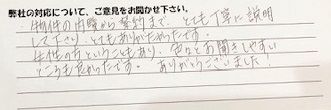 弊社の対応について、ご意見をお聞かせ下さい。
物件の内覧から契約まで、とても丁寧に説明
して下さり、とてもありがたかったです。
女性の方ということもあり、色々とお聞きしやすい
ところも良かったです。 ありがとうございました！